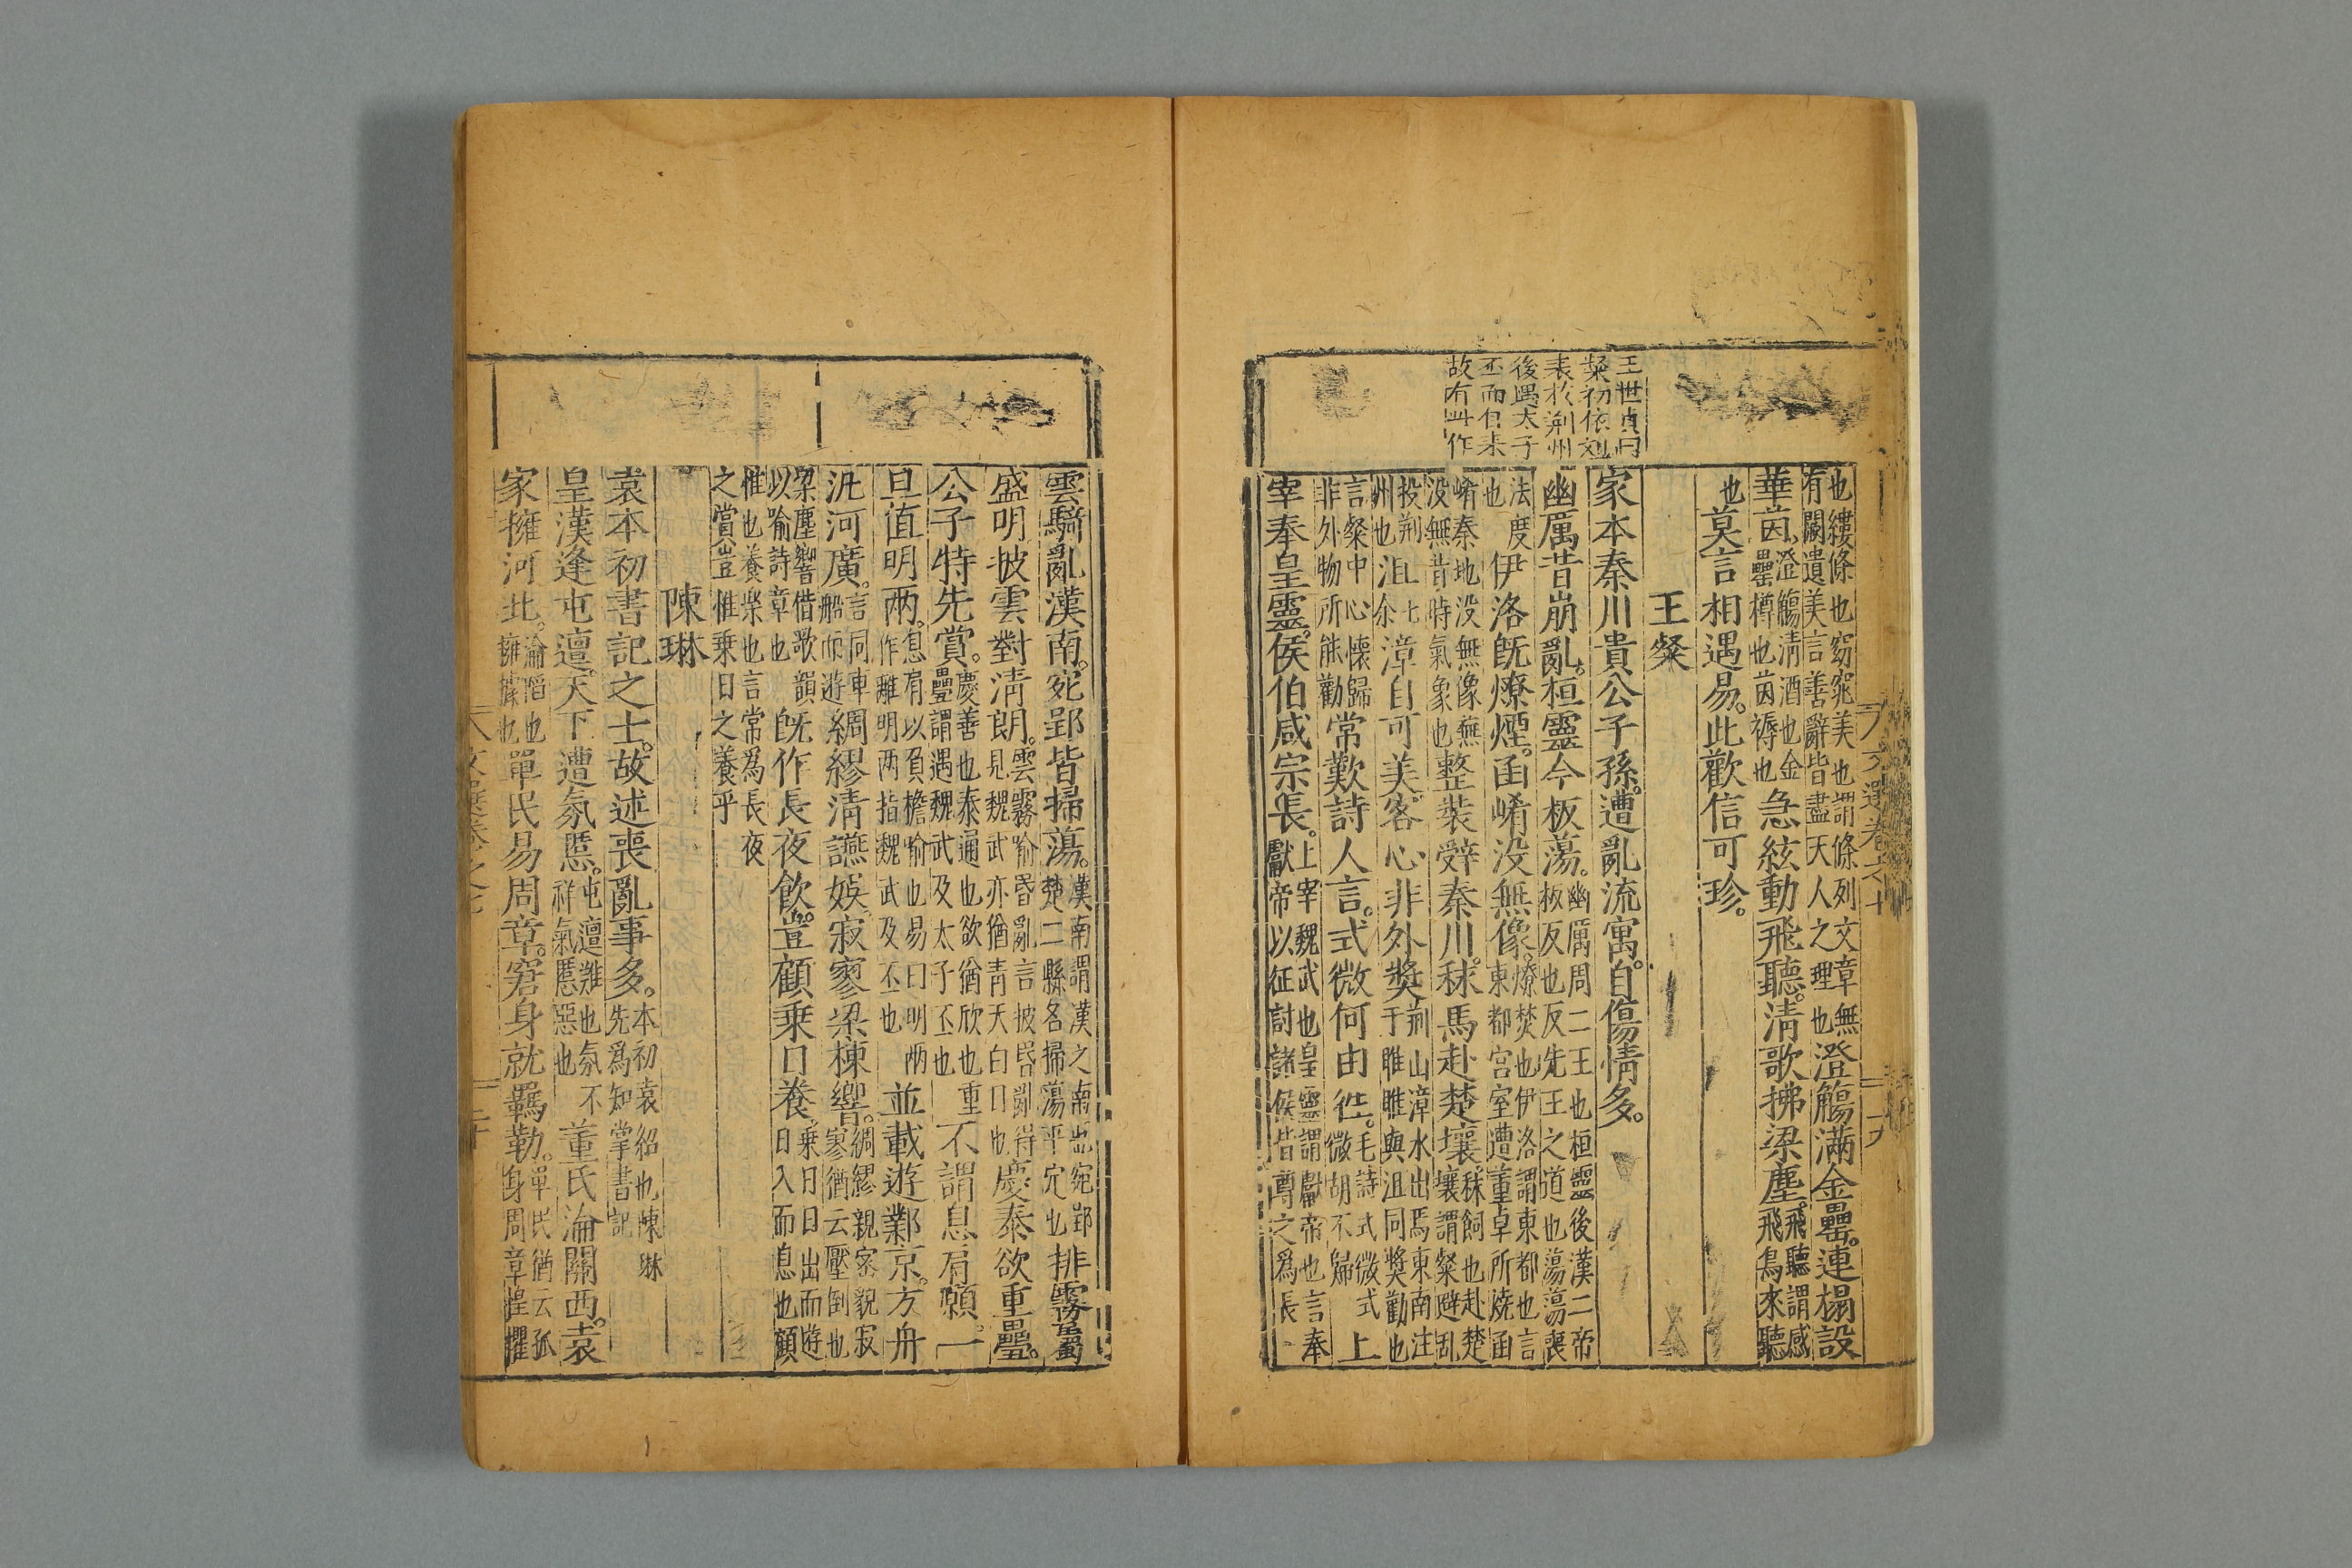 王世貞曰
粲初依劉
表於荆州
後遇太子
丕而日來
故有此作
也縷條也窈窕美也謂條列文章無
有闕遺美言善辭皆盡天人之理也
澄觴滿金罍。連榻設
華茵、
澄觴清酒也金
罍樽也茵褥也
急絃動飛聽。清歌拂梁塵。
飛聽謂感
飛鳥來聽
也
莫言相遇易。此歡信可珍。
王粲
家本秦川貴公子孫。遭亂流寓。自傷情多。
幽厲昔崩亂。桓靈今板蕩。
幽厲周二王也桓靈後漢二帝
板反也反先王之道也蕩蕩喪
法度
也
伊洛旣燎煙。函崤没無像。
燎焚也伊洛謂東都也言
東都宮室遭董卓所燒函
崤秦地没無像無
没無昔時氣象也
整裝辭秦川。秣馬赴楚壤。
秣飼也赴楚
壤謂粲避乱
投荆
州也
沮漳自可美。客心非外獎。
荆山漳水出焉東南注
于睢睢與沮同獎勸也
言粲中心懷歸
非外物所能勸
常歎詩人言。式微何由徃。
毛詩式微式
微胡不歸
上
宰奉皇靈。侯伯咸宗長。
上宰魏武也皇靈謂獻帝也言奉
獻帝以征討諸侯皆尊之爲長
文選卷之七
十九
雲騎亂漢南。宛郢皆掃蕩。
漢南謂漢之南出宛郢
楚二縣名掃蕩平定也
排霧屬
盛明披雲對清朗。
雲霧喻昏亂言披昏亂得
見魏武亦猶青天白日也
慶泰欲重疊。
公子特先賞。
慶善也泰通也欲猶欣也重
疊謂遇魏武及太子丕也
不謂息肩願。一
旦值明兩。
息肩以負檐喻也易曰明兩
作離明两指魏武及丕也
並載遊鄴京。方舟
汎河廣。
言同車
船而遊
綢繆清讌娛、寂寥梁棟響。
綢繆親密貌寂
寥猶云壓倒也
梁塵響借歌韻
以喻詩章也
旣作長夜飲。豈顧乗日養、
乗日日出而遊
日入而息也顧
惟也養樂也言常爲長夜
之賞豈惟乗日之養乎
陳琳
袁本初書記之士。故述喪亂事多。
本初袁紹也陳琳
先爲知掌書記
皇漢逢屯邅。天下遭氛慝。
屯邅難也氛不
祥氣慝惡也
董氏淪關西。袁
家擁河北。
淪陷也
擁據也
單民易周章。窘身就羈勒。
單民猶云孤
身周章惶懼
文選卷之七
二十